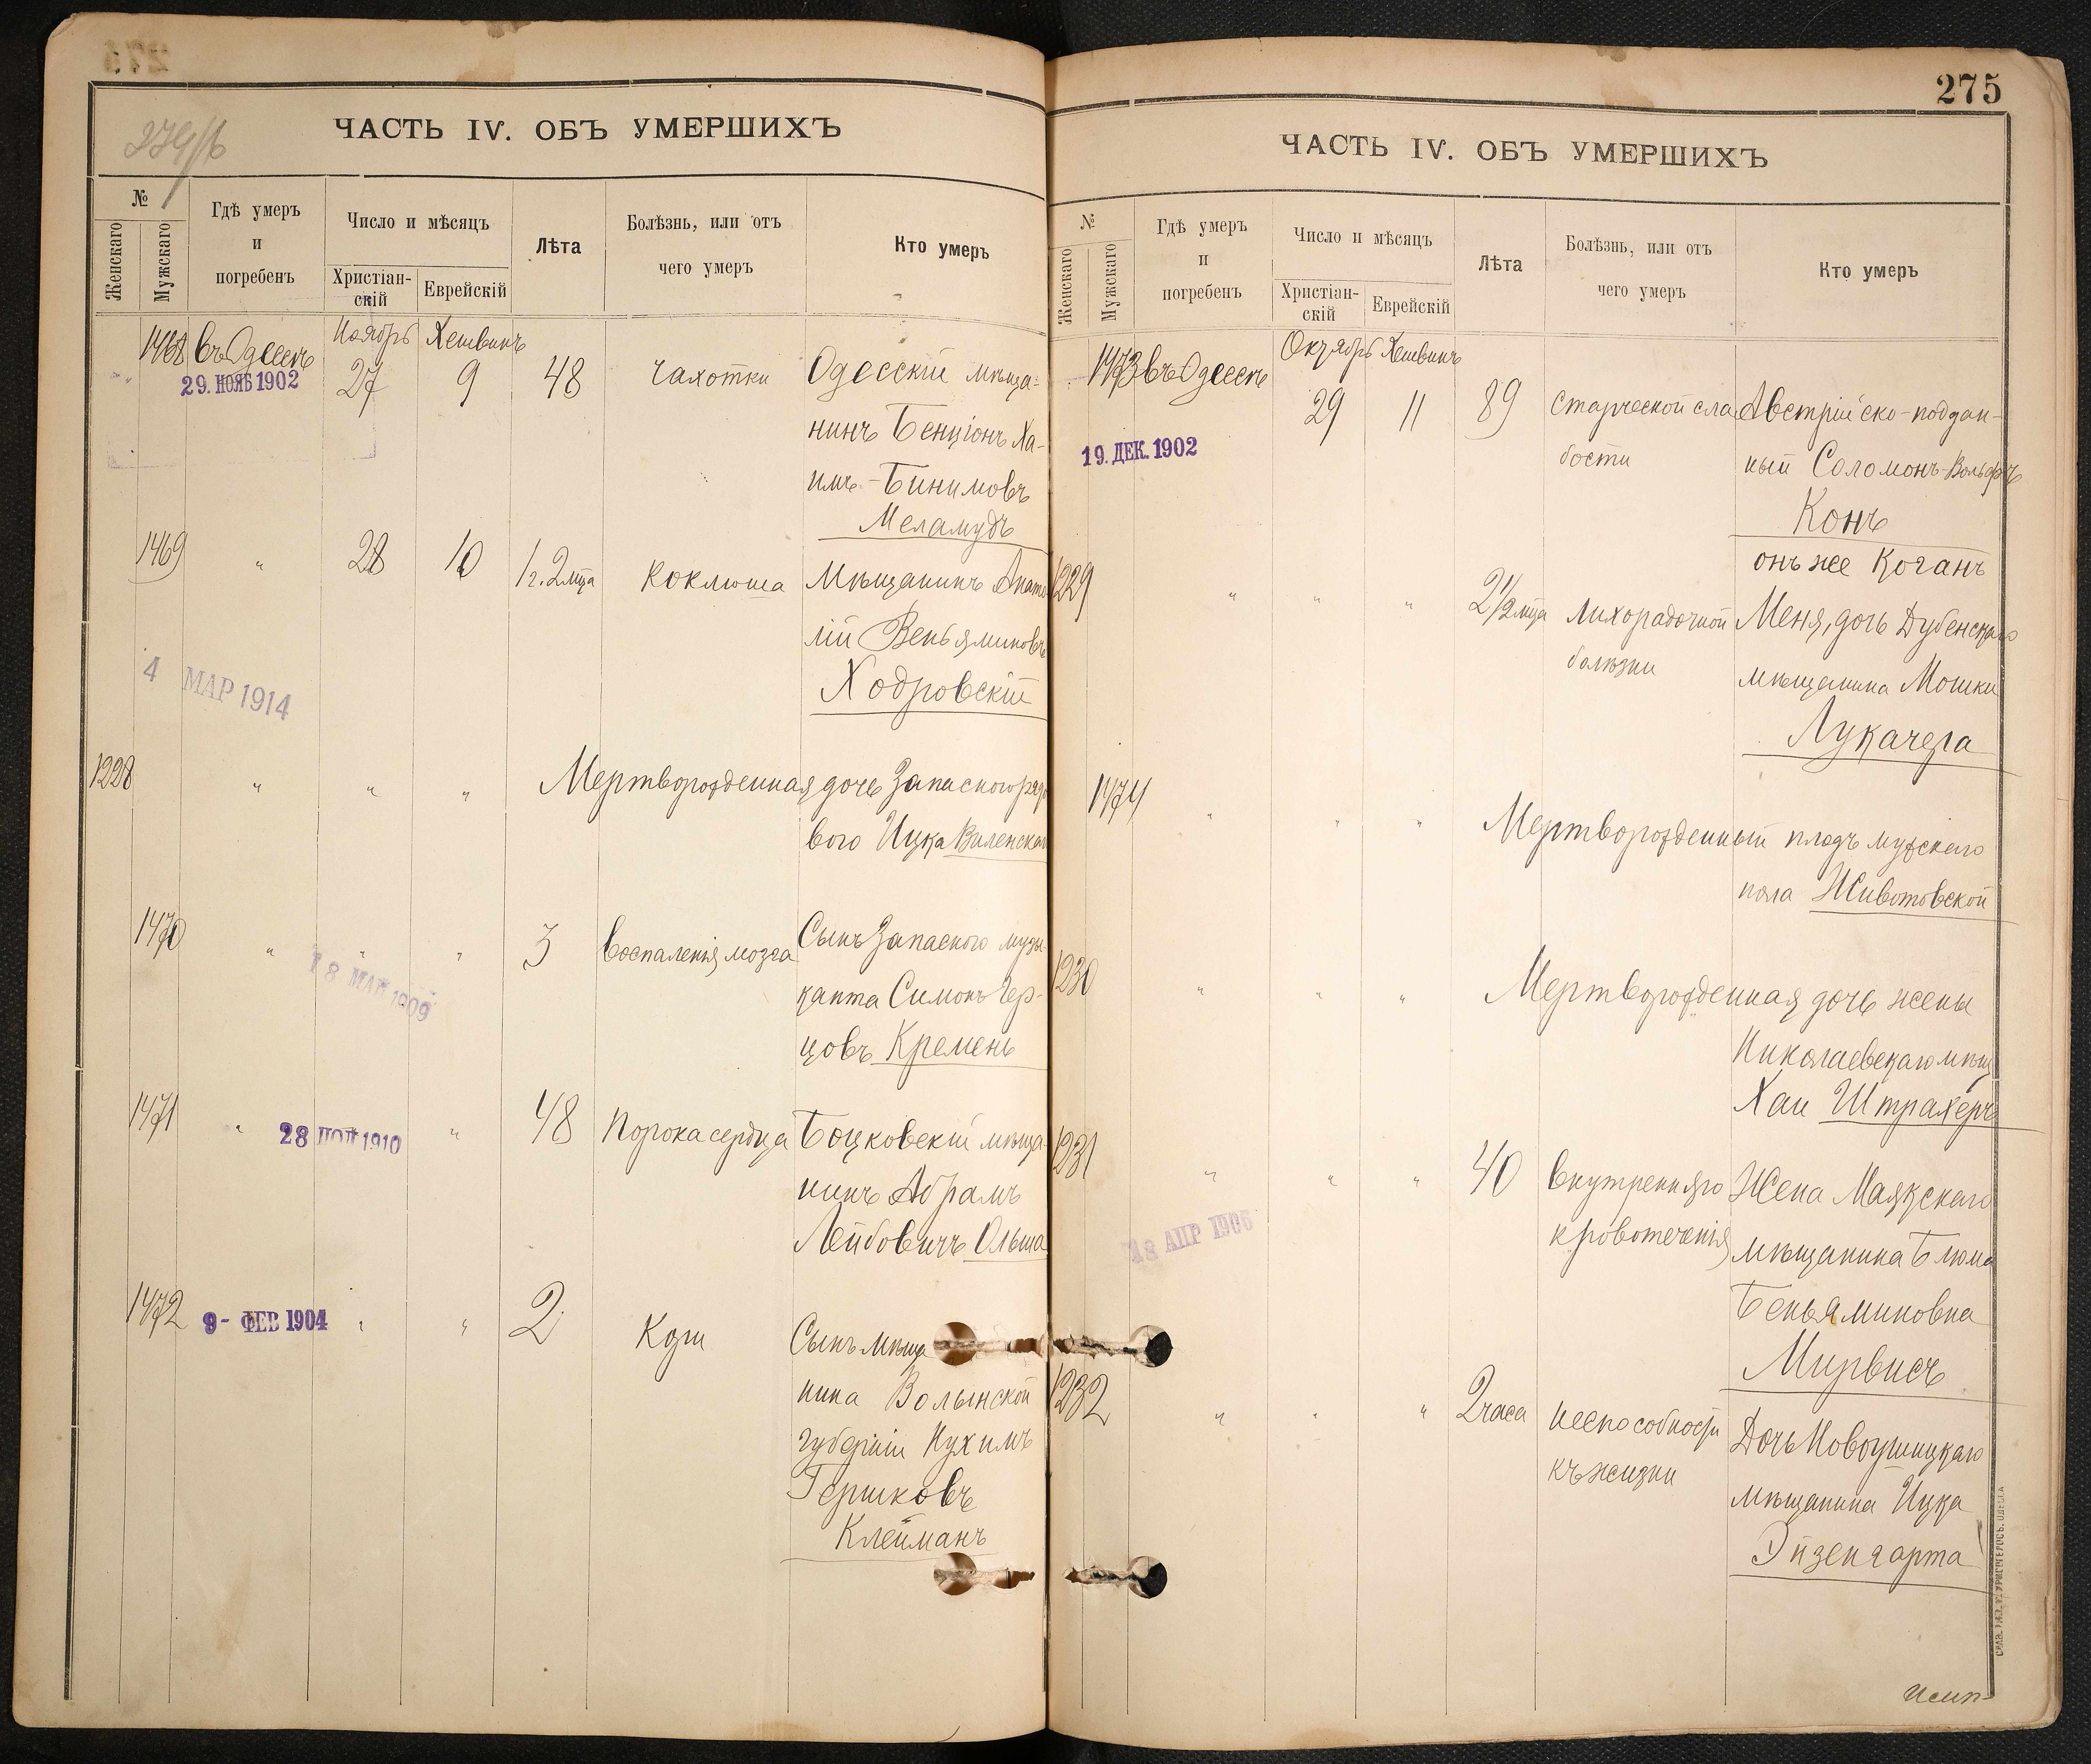 274/б
ЧАСТЬ IV. ОБЪ УМЕРШИХЪ
№
Женскаго
Мужскаго
Гдѣ умеръ
и
погребенъ
Число и мѣсяцъ
Христіан-
скій
Еврейскій
Лѣта
Болѣзнь, или отъ
чего умеръ
Кто умеръ
Ноябрь Хешвинъ
1468 въ Одессѣ 27 9 48 Чахотки Одесскій мѣща-
29. НОЯБ 1902
нинъ Бенціонъ Ха-
имъ-Бинимовъ
Меламудъ
1469 " 28 10 1 г. 2 м-ца Коклюша Мѣщанинъ Анато
лій Веньяминовъ
Ходровскій
4 МАР 1914
1228 " " " Мертворожденная дочь Запаснаго рядо
вого Ицка Виленская
1470 " " " 3 Воспаленія мозга Сынъ Запаснаго музы-
18 МАЙ 1909
канта Симонъ Гер-
цовъ Кремень
1471 " " " 48 Порока сердца Боцковскій мѣща-
28 1910
нинъ Абрамъ
Лейбовичъ Ольша
1472 " " 2 Кори Сынъ мѣща
9- ФЕВ 1904
нина Волынской
губерніи Нухимъ
Гершковъ
Клейманъ
275
ЧАСТЬ IV. ОБЪ УМЕРШИХЪ
№
Женскаго
Мужскаго
Гдѣ умеръ
и
погребенъ
Число и мѣсяцъ
Христіан-
скій
Еврейскій
Лѣта
Болѣзнь, или отъ
чего умеръ
Кто умеръ
Октябрь Хешвинъ
1473 въ Одессѣ 29 11 89 Старческой сла Австрійско-поддан-
19. ДЕК. 1902
бости ный Соломонъ-Вольфъ
Конъ
онъ же Коганъ
1229 " " " 2 1/2 м-ца Лихорадочной Меня, дочь Дубенскаго
болѣзни мѣщанина Мошки
Лукачера
1474 " " " Мертворожденный плодъ мужскаго
пола Животовской
1230 " " " Мертворожденная дочь жены
Николаевскаго мѣщ
Хаи Штрахеръ
1231 " " " 40 Внутренняго Жена Маякскаго
18 АПР 1906
кровотеченія мѣщанина Блюма
Беньяминовна
Мирвисъ
1232 " " " 2 часа Неспособности Дочь Новоушицкаго
къ жизни мѣщанина Ицка
Эйзенгарта